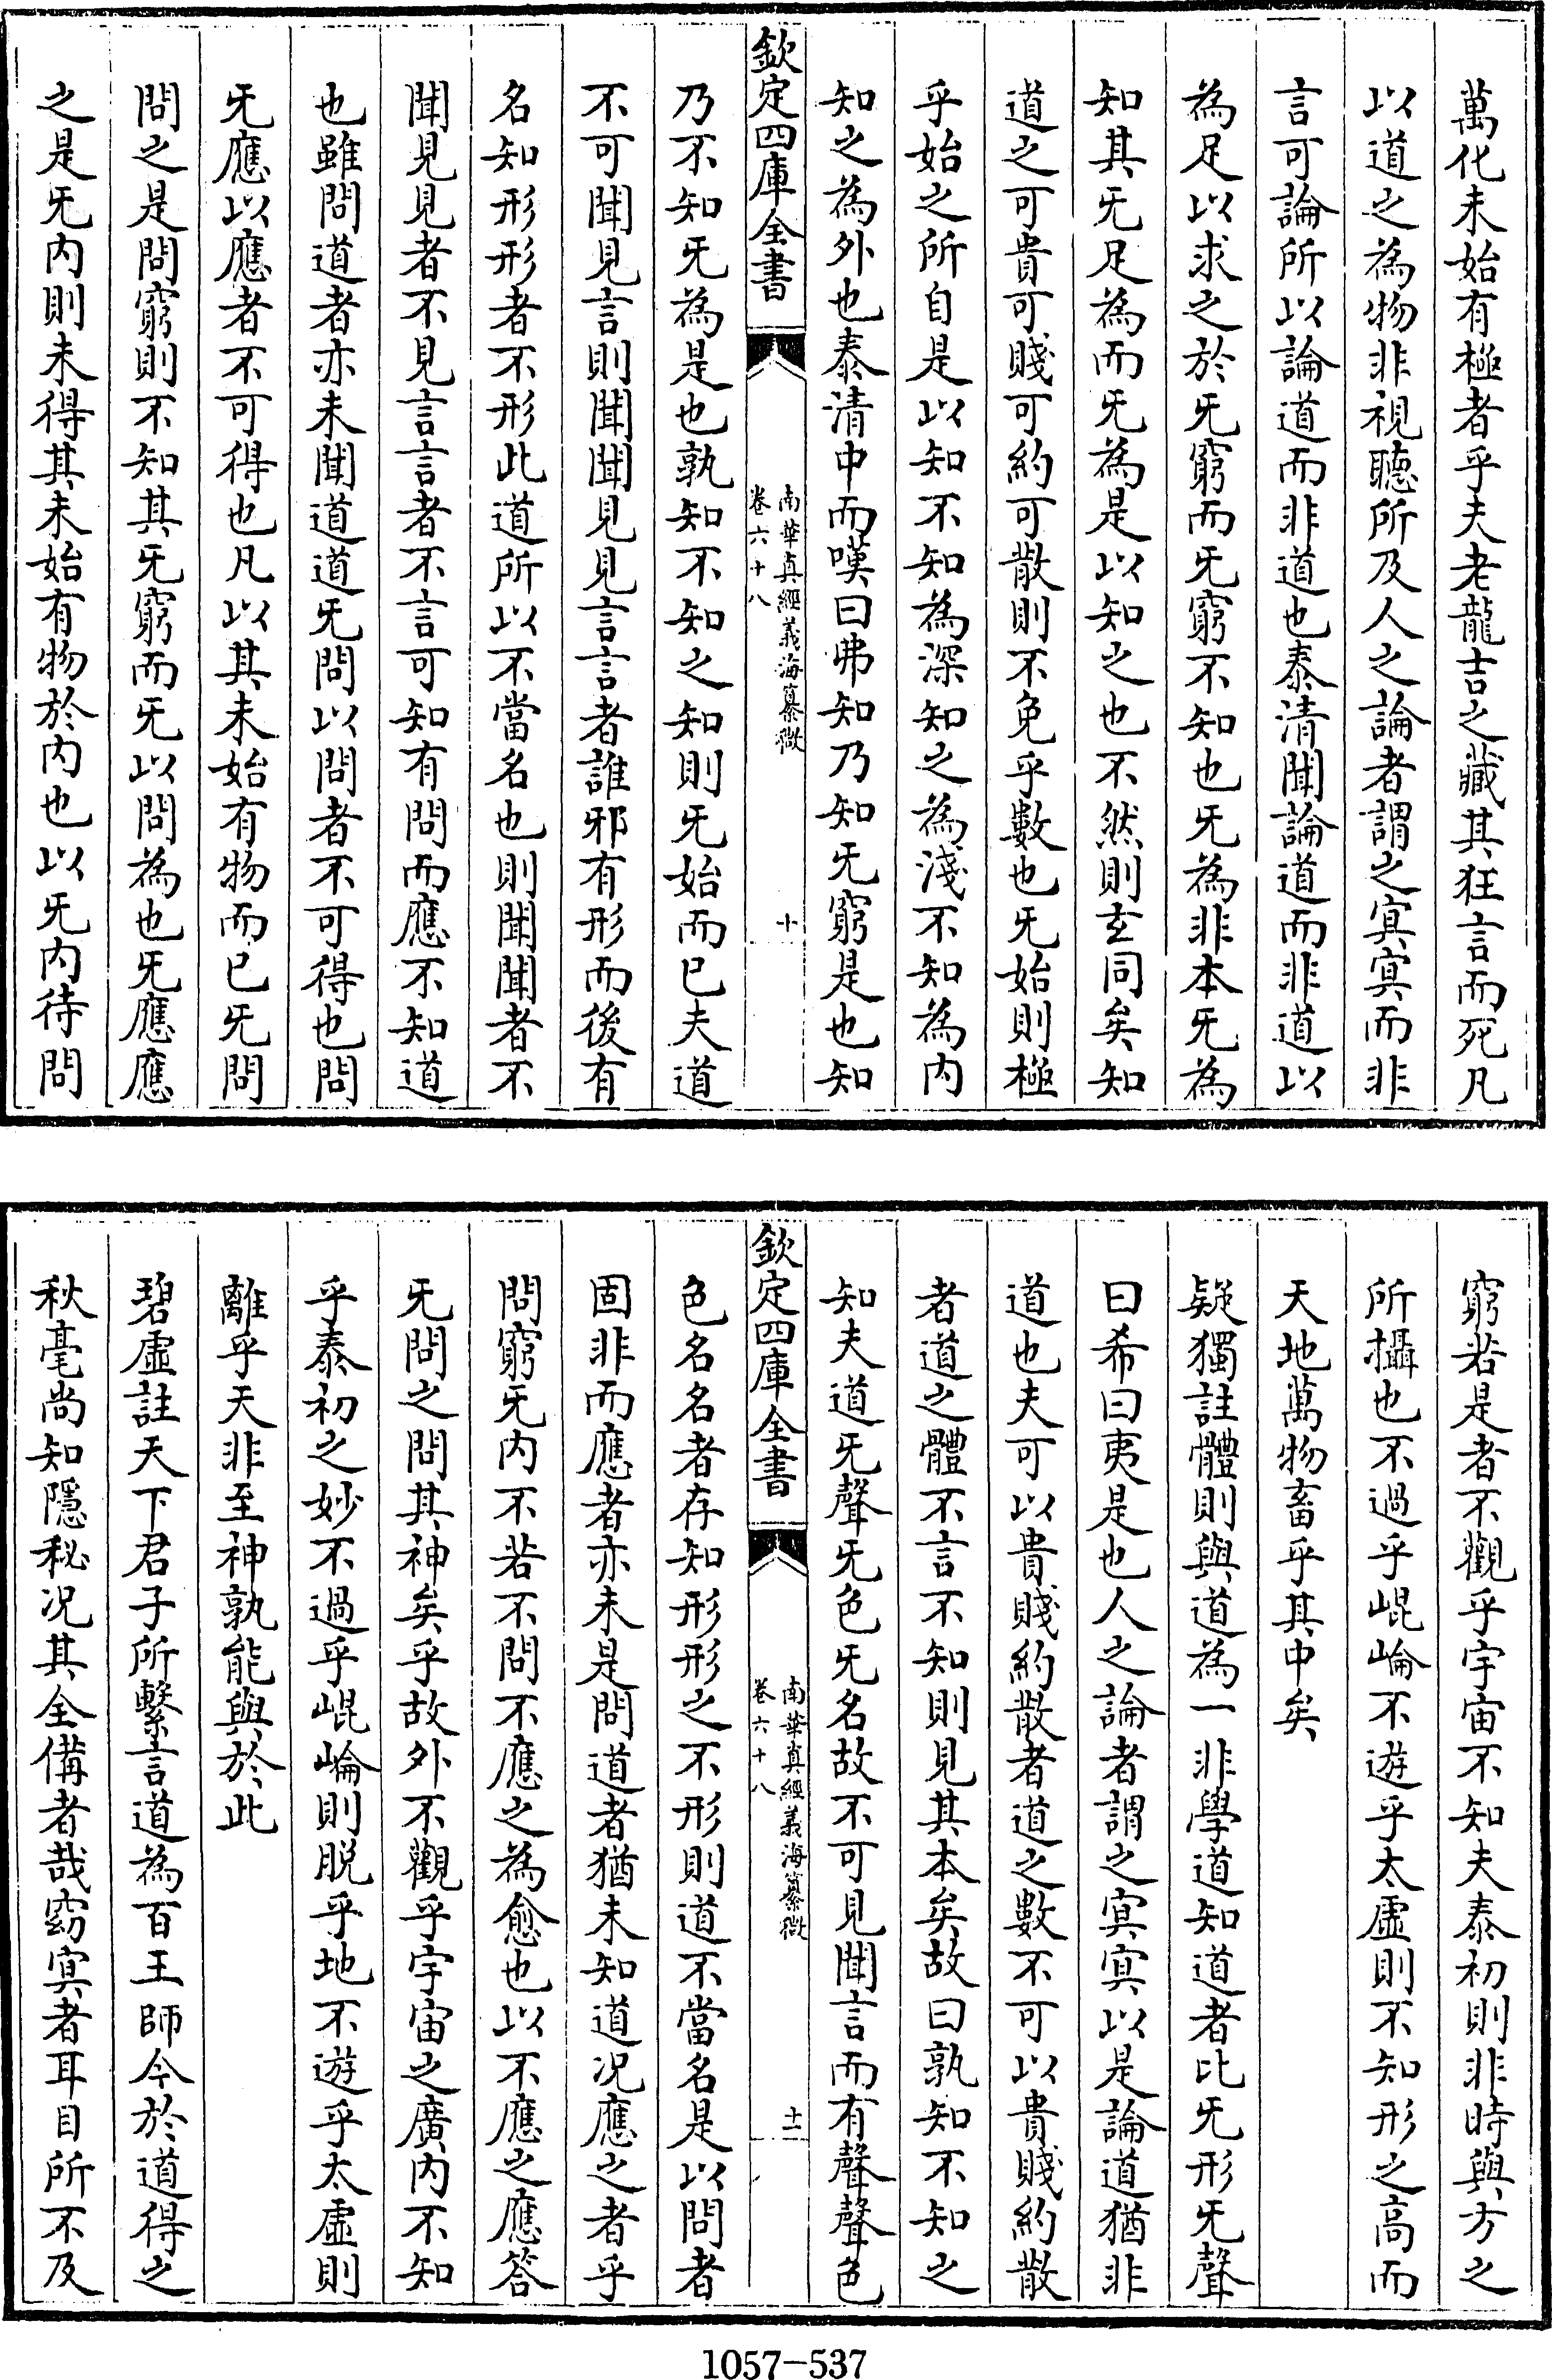 萬化未始有極者乎夫老龍吉之藏其狂言而死凡
以道之為物非視聽所及人之論者謂之冥冥而非
言可論所以論道而非道也泰清聞論道而非道以
為足以求之於无窮而无窮不知也无為非本无為
知其无足為而无為是以知之也不然則玄同矣知
道之可貴可賤可約可散則不免乎數也无始則極
乎始之所自是以知不知為深知之為淺不知為内
知之為外也泰清中而嘆曰弗知乃知无窮是也知
欽定四庫全書
南華真經義海纂微
卷六十八
十
乃不知无為是也孰知不知之知則无始而已夫道
不可聞見言則聞聞見見言言者誰邪有形而後有
名知形形者不形此道所以不當名也則聞聞者不
聞見見者不見言言者不言可知有問而應不知道
也雖問道者亦未聞道道无問以問者不可得也問
无應以應者不可得也凡以其未始有物而已无問
問之是問窮則不知其无窮而无以問為也无應應
之是无内則未得其未始有物於内也以无内待問
窮若是者不觀乎宇宙不知夫泰初則非時與方之
所攝也不過乎崐崘不遊乎太虚則不知形之高而
天地萬物畜乎其中矣
疑獨註體則與道為一非學道知道者比无形无聲
曰希曰夷是也人之論者謂之冥冥以是論道猶非
道也夫可以貴賤約散者道之數不可以貴賤約散
者道之體不言不知則見其本矣故曰孰知不知之
知夫道无聲无色无名故不可見聞言而有聲聲色
欽定四庫全書
南華真經義海纂微
卷六十八
十一
色名名者存知形形之不形則道不當名是以問者
固非而應者亦未是問道者猶未知道况應之者乎
問窮无内不若不問不應之為愈也以不應之應答
无問之問其神矣乎故外不觀乎宇宙之廣内不知
乎泰初之妙不過乎崐崘則脱乎地不遊乎太虚則
離乎天非至神孰能與於此
碧虚註天下君子所繫言道為百王師今於道得之
秋毫尚知隱秘况其全備者哉窈冥者耳目所不及
1057-537